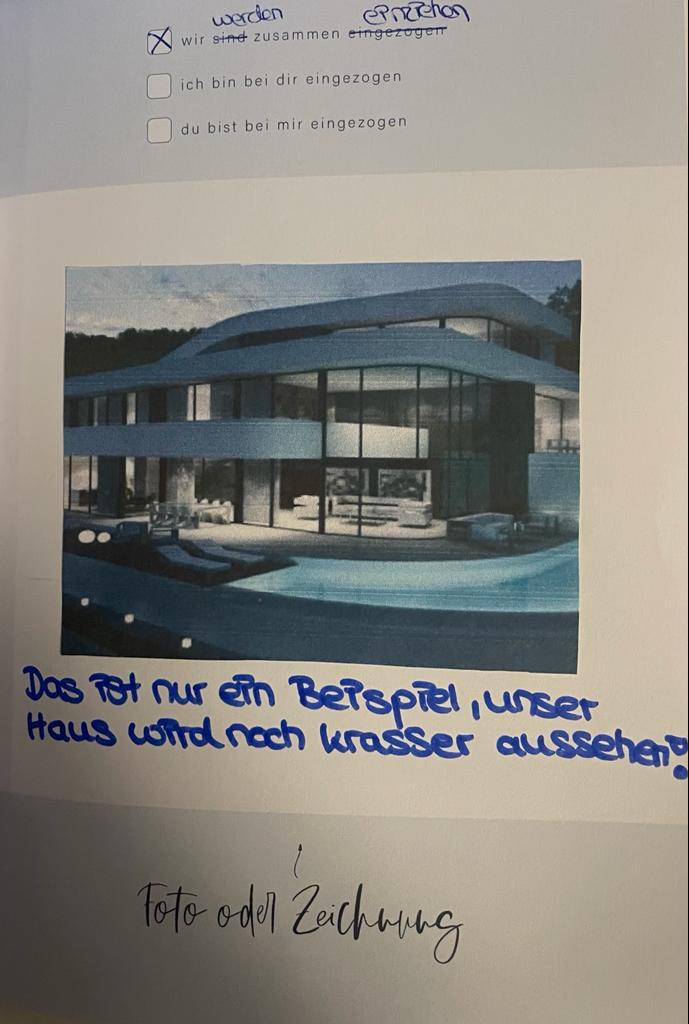 werden einziehen
wir sind zusammen eingezogen
ich bin bei dir eingezogen
du bist bei mir eingezogen
Das ist nur ein Beispiel, unser
Haus wird noch krasser aussehen!
Foto oder Zeichnung